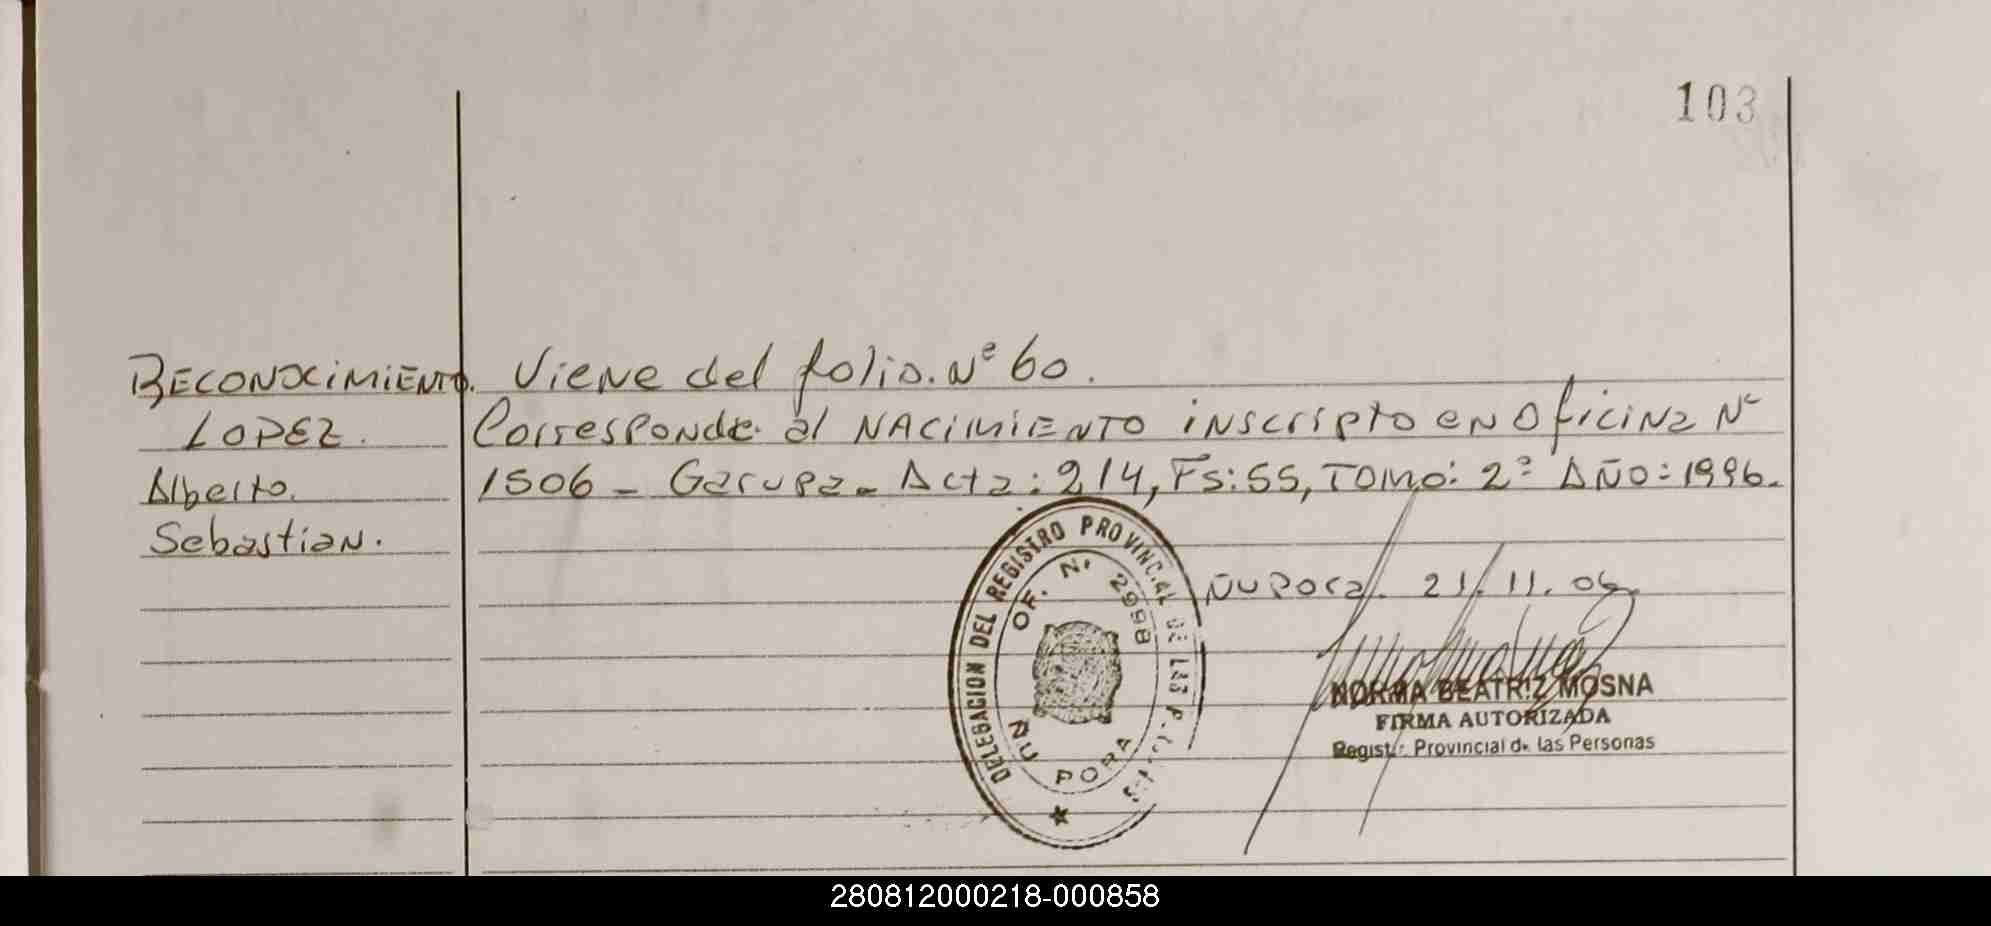 103
RECONOCIMIENTO. Viene del folio. Nº 60.
LOPEZ. Corresponde al NACIMIENTO inscripto en Oficina Nº
Alberto. 1506 - Garupa - Acta: 214, Fs: 55, TOMO: 2º AÑO: 1996.
Sebastian.
DELEGACION DEL REGISTRO PROVINCIAL DE LAS P.
OF. Nº 2998
ÑU PORA
Ñupora. 21.11.06
NORMA BEATRIZ MOSNA
FIRMA AUTORIZADA
Registro Provincial de las Personas
280812000218-000858